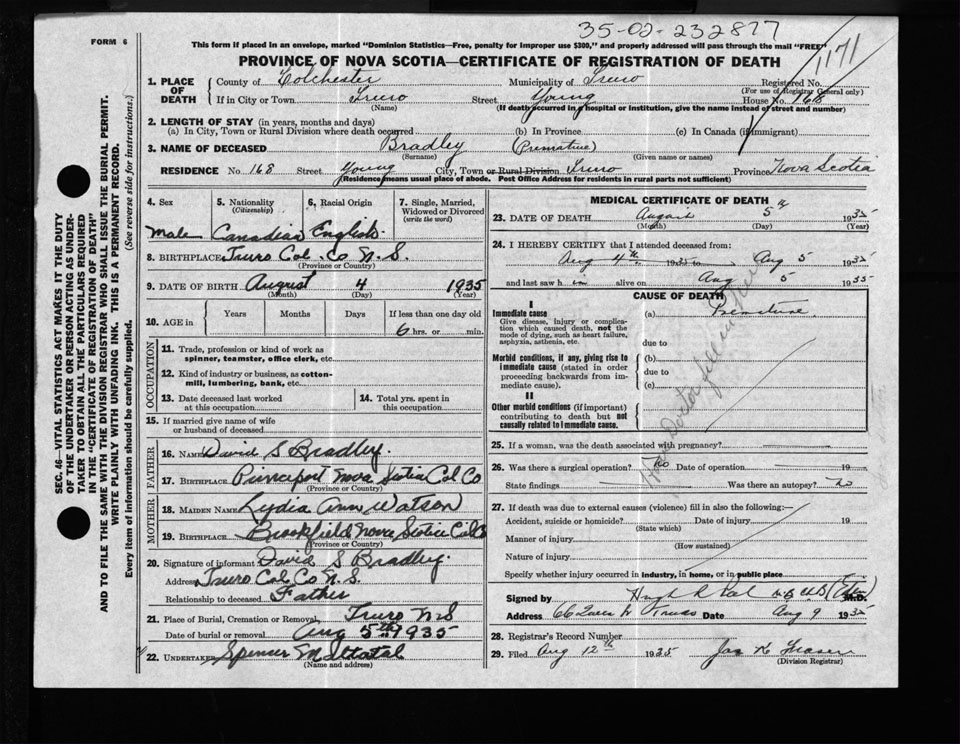 35-02-232877
FORM 6
This form if placed in an envelope, marked "Dominion Statistics—Free, penalty for improper use $300," and properly addressed will pass through the mail "FREE"
1171
PROVINCE OF NOVA SCOTIA—CERTIFICATE OF REGISTRATION OF DEATH
1. PLACE OF DEATH
County of Colchester Municipality of Truro Registered No.
(For use of Registrar General only)
If in City or Town Truro Street Young House No. 168
(Name) (If death occurred in a hospital or institution, give the name instead of street and number)
2. LENGTH OF STAY (in years, months and days)
(a) In City, Town or Rural Division where death occurred (b) In Province (c) In Canada (if immigrant)
3. NAME OF DECEASED Bradley (Premature)
(Surname) (Given name or names)
RESIDENCE No. 168 Street Young City, Town or Rural Division Truro Province Nova Scotia
(Residence means usual place of abode. Post Office Address for residents in rural parts not sufficient)
SEC. 46—VITAL STATISTICS ACT MAKES IT THE DUTY
OF THE UNDERTAKER OR PERSON ACTING AS UNDER-
TAKER TO OBTAIN ALL THE PARTICULARS REQUIRED
IN THE "CERTIFICATE OF REGISTRATION OF DEATH"
AND TO FILE THE SAME WITH THE DIVISION REGISTRAR WHO SHALL ISSUE THE BURIAL PERMIT.
WRITE PLAINLY WITH UNFADING INK. THIS IS A PERMANENT RECORD.
Every item of information should be carefully supplied. (See reverse side for instructions.)
4. Sex
5. Nationality
(Citizenship)
6. Racial Origin
7. Single, Married,
Widowed or Divorced
(write the word)
Male Canadian English
8. BIRTHPLACE Truro Col. Co N.S.
(Province or Country)
9. DATE OF BIRTH August 4 1935
(Month) (Day) (Year)
10. AGE in
Years Months Days If less than one day old
6 hrs. or min.
OCCUPATION
11. Trade, profession or kind of work as
spinner, teamster, office clerk, etc.
12. Kind of industry or business, as cotton-
mill, lumbering, bank, etc.
13. Date deceased last worked
at this occupation
14. Total yrs. spent in
this occupation
15. If married give name of wife
or husband of deceased
FATHER
16. NAME David S Bradley.
17. BIRTHPLACE Princeport Nova Scotia Col Co
(Province or Country)
MOTHER
18. MAIDEN NAME Lydia Ann Watson
19. BIRTHPLACE Brookfield Nova Scotia Col Co
(Province or Country)
20. Signature of informant David S Bradley.
Address Truro Col. Co N.S.
Relationship to deceased Father
21. Place of Burial, Cremation or Removal Truro N S
Date of burial or removal Aug 5th 1935
22. UNDERTAKER Spencer
(Name and address)
MEDICAL CERTIFICATE OF DEATH
23. DATE OF DEATH August 5th 1935
(Month) (Day) (Year)
24. I HEREBY CERTIFY that I attended deceased from:
Aug 4th 1935 to Aug 5 1935
and last saw him alive on Aug 5 1935
CAUSE OF DEATH
I
Immediate cause
Give disease, injury or complica-
tion which caused death, not the
mode of dying, such as heart failure,
asphyxia, asthenia, etc.
(a) Premature.
due to
Morbid conditions, if any, giving rise to
immediate cause (stated in order
proceeding backwards from im-
mediate cause).
(b)
due to
(c)
II
Other morbid conditions (if important)
contributing to death but not
causally related to immediate cause.
Doctor fill in
25. If a woman, was the death associated with pregnancy?
26. Was there a surgical operation? No Date of operation 19
State findings Was there an autopsy? no
27. If death was due to external causes (violence) fill in also the following:—
Accident, suicide or homicide? Date of injury 19
(State which)
Manner of injury
(How sustained)
Nature of injury
Specify whether injury occurred in industry, in home, or in public place
Signed by Hugh R M.D.
Address Date Aug 9 1935
28. Registrar's Record Number
29. Filed Aug 12th 1935 Jas K Fraser
(Division Registrar)